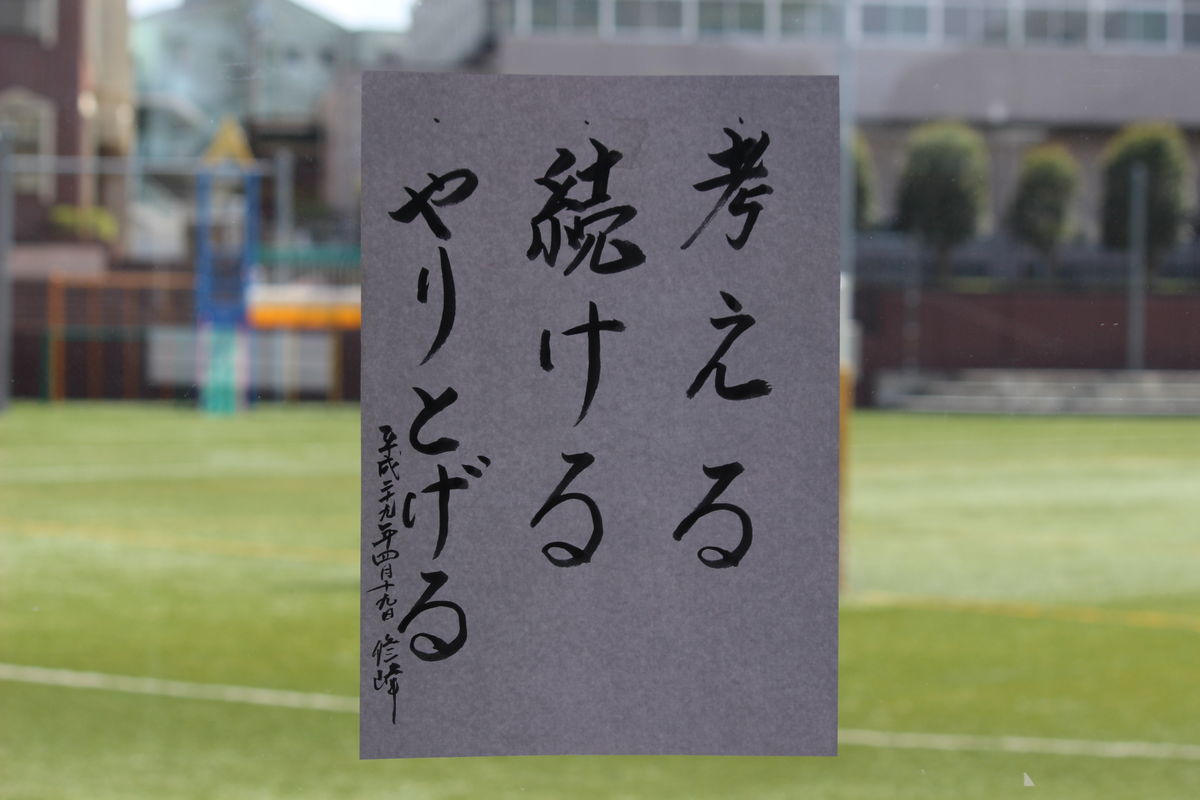 考える
続ける
やりとげる
平成二十九年四月十九日 修峰